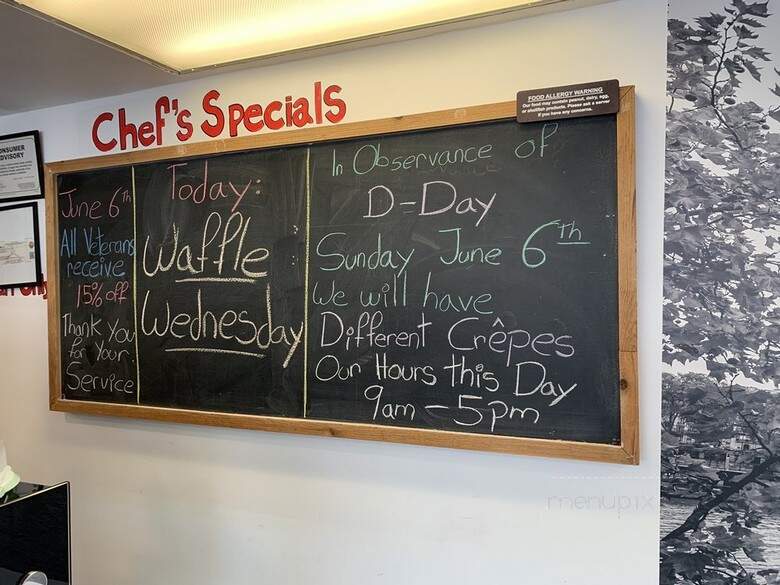 Chef's Specials
FOOD ALLERGY WARNING
Our food may contain peanut, dairy, egg,
or shellfish products. Please ask a server
if you have any concerns.
ONSUMER
DVISORY
June 6th
All Veterans
receive
15% off
Thank You
for Your
Service
Today:
Waffle
Wednesday
In Observance of
D-Day
Sunday June 6Th
We will have
Different Crêpes
Our Hours this Day
9am - 5pm
menupix